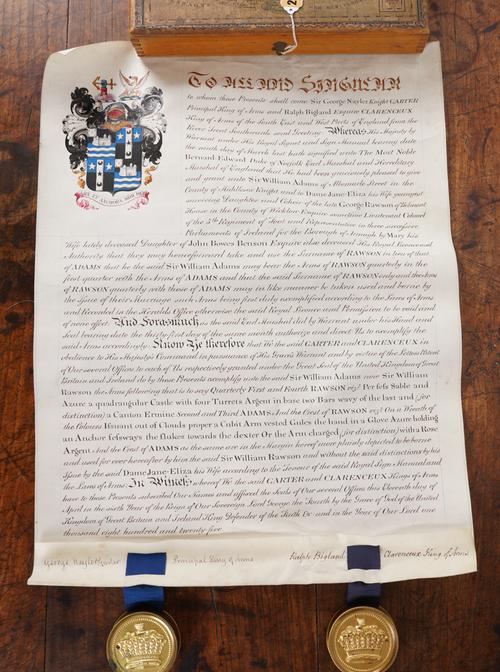 TO ALL AND SINGULAR
to whom these Presents shall come Sir George Nayler Knight GARTER
Principal King of Arms and Ralph Bigland Esquire CLARENCEUX
King of Arms of the South East and West Parts of England from the
River Trent Southwards send Greeting Whereas His Majesty by
Warrant under His Royal Signet and Sign Manual bearing date
the ninth day of March last hath signified unto The Most Noble
Bernard Edward Duke of Norfolk Earl Marshal and Hereditary
Marshal of England that He had been graciously pleased to give
and grant unto Sir William Adams of Albemarle Street in the
County of Middlesex Knight and to Dame Jane-Eliza his Wife youngest
surviving Daughter and Coheir of the late George Rawson of Belmont
House in the County of Wicklow Esquire sometime Lieutenant Colonel
of the 5th Regiment of Foot and Representative in three successive
Parliaments of Ireland for the Borough of Armagh by Mary his
Wife lately deceased Daughter of John Bowes Benson Esquire also deceased His Royal Licence and
Authority that they may henceforward take and use the Surname of RAWSON in lieu of that
of ADAMS that he the said Sir William Adams may bear the Arms of RAWSON quarterly in the
first quarter with the Arms of ADAMS and that the said Surname of RAWSON only and the Arms
of RAWSON quarterly with those of ADAMS may in like manner be taken used and borne by
the Issue of their Marriage such Arms being first duly exemplified according to the Laws of Arms
and Recorded in the Heralds Office otherwise the said Royal Licence and Permission to be void and
of none effect And Forasmuch as the said Earl Marshal did by Warrant under his Hand and
Seal bearing date the thirty first day of the same month authorize and direct Us to exemplify the
said Arms accordingly Know Ye therefore that We the said GARTER and CLARENCEUX in
obedience to His Majesty's Command in pursuance of His Grace's Warrant and by virtue of the Letters Patent
of Our several Offices to each of Us respectively granted under the Great Seal of the United Kingdom of Great
Britain and Ireland do by these Presents exemplify unto the said Sir William Adams now Sir William
Rawson the Arms following that is to say Quarterly First and Fourth RAWSON viz Per fess Sable and
Azure a quadrangular Castle with four Turrets Argent in base two Bars wavy of the last and (for
distinction) a Canton Ermine Second and Third ADAMS And the Crest of RAWSON viz On a Wreath of
the Colours Issuant out of Clouds proper a Cubit Arm vested Gules the hand in a Glove Azure holding
an Anchor fesswayw the flukes towards the dexter Or the Arm charged (for distinction) with a Rose
Argent And the Crest of ADAMS as the same are in the Margin hereof more plainly depicted to be borne
and used for ever hereafter by him the said Sir William Rawson and without the said distinctions by his
Issue by the said Dame Jane-Eliza his Wife according to the Tenour of the said Royal Sign Manual and
the Laws of Arms In Witness whereof We the said GARTER and CLARENCEUX Kings of Arms
have to these Presents subscribed Our Names and affixed the Seals of Our several Offices this Eleventh day of
April in the sixth Year of the Reign of Our Sovereign Lord George the Fourth by the Grace of God of the United
Kingdom of Great Britain and Ireland King Defender of the Faith &c and in the Year of Our Lord one
thousand eight hundred and twenty five
George Nayler Garter Principal King of Arms
Ralph Bigland Clarenceux King of Arms